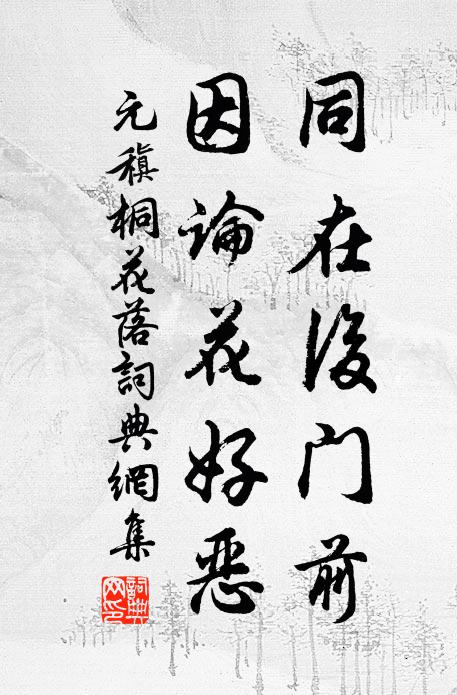 同在後门前
因論花好惡
元稹桐花落詞典網集
詞典网印